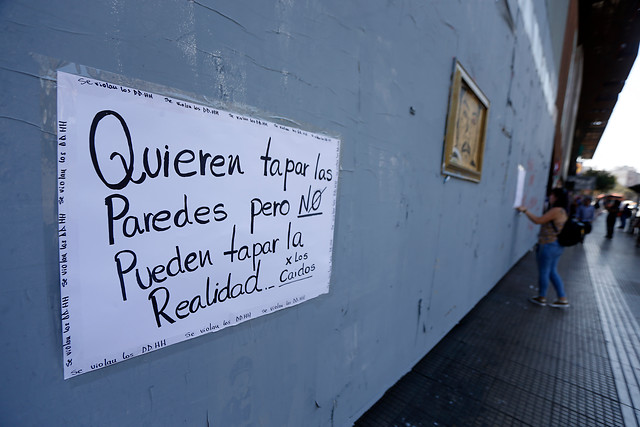 Se violan los DD.HH Se violan los DD.HH Se violan los DD.HH
Quieren tapar las
Paredes pero NO
Pueden tapar la
Realidad...
x los
Caidos
Se violan los DD.HH Se violan los DD.HH
Se violan los DD.HH Se violan los DD.HH Se violan los DD.HH